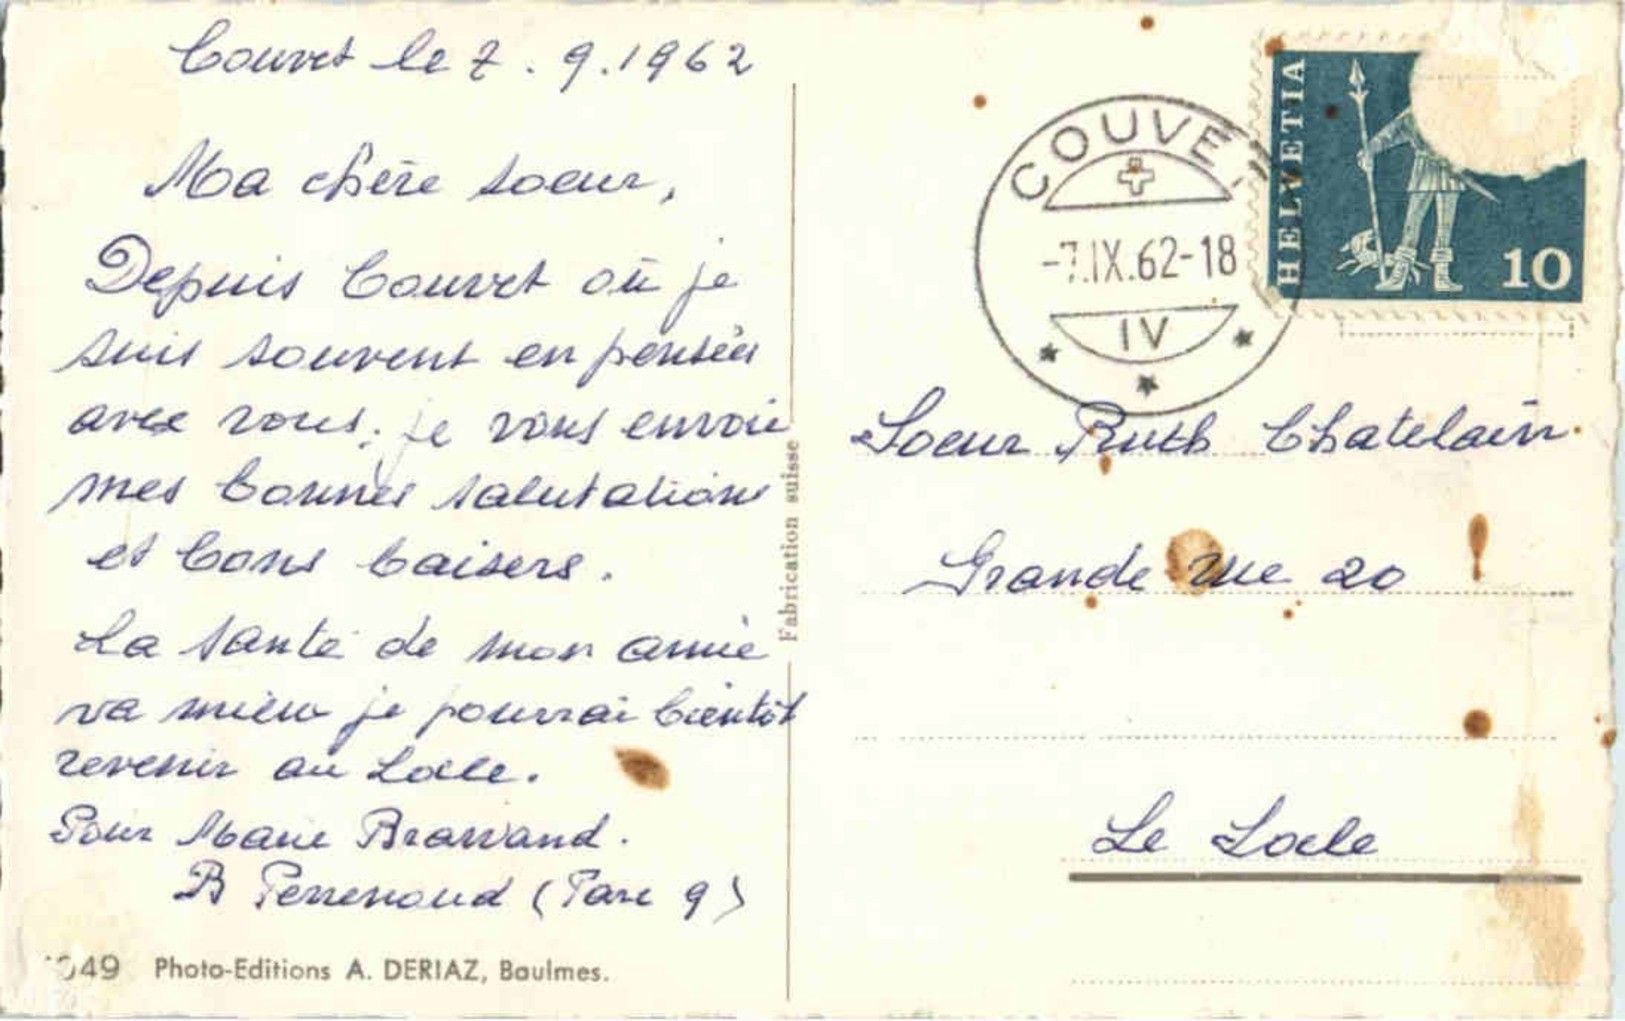 Couvet le 7.9.1962
Ma chère soeur,
Depuis Couvet où je
suis souvent en pensées
avec vous, je vous envoie
mes bonnes salutations
et bons baisers.
La santé de mon amie
va mieux je pourrai bientôt
revenir au Locle.
Pour Marie Brassand.
B Perrenoud (Parc 9)
1049 Photo-Editions A. DERIAZ, Baulmes.
Fabrication suisse
COUVET
-7.IX.62-18
IV
HELVETIA
10
Soeur Ruth Chatelain
Grande rue 20
Le Locle